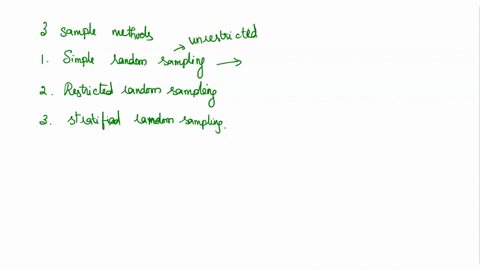 3 sample methods
unrestricted
1. Simple random sampling →
2. Restricted random sampling
3. stratified random sampling.